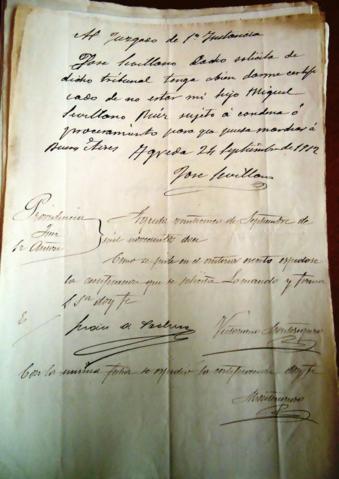 Al Juzgado de 1ª Instancia
José Sevillano Dadio solicita de
dicho tribunal tenga abien darme certifi
cado de no estar mi hijo Miguel
Sevillano Ruiz sujeto á condena ó
procesamiento para que pueda marchar á
Buenos Aires Agreda 24 Septiembre de 1912
José Sevillano
Providencia
Juez
Agreda veinticinco de Septiembre de
mil novecientos doce
Como se pide en el anterior escrito expidase
la certificación que se solicita Lo mando y firma
S Sª doy fe
Victoriano
Con la misma fecha se expidio la certificacion doy fe